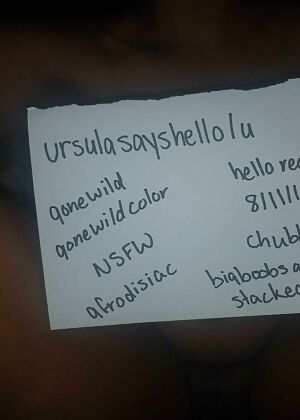 ursulasayshello/u
gonewild
gonewildcolor
NSFW
afrodisiac
hello red
8/11/1
chubb
bigboobs a
stacked